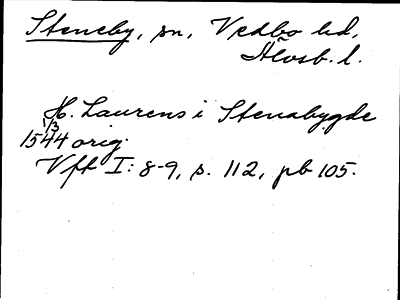 Steneby, sn, Vedbo hd,
Älvsb. l.
H. Laurens i Stenabygde
1/3
1544 orig.
Vft I: 8-9, s. 112, pb 105.